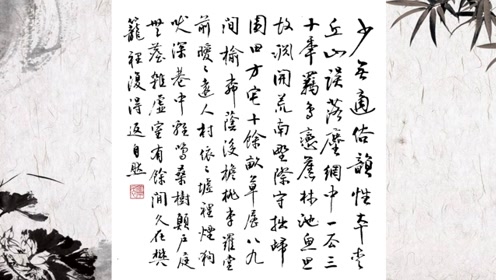 少無適俗韻性本愛
丘山誤落塵網中一去三
十年羈鳥戀舊林池魚思
故淵開荒南埜際守拙歸
園田方宅十餘畝草屋八九
間榆柳蔭後檐桃李羅堂
前曖〻遠人村依〻墟裡煙狗
吠深巷中雞鳴桑樹顛戶庭
無塵雜虛室有餘閒久在樊
籠裡復得返自然